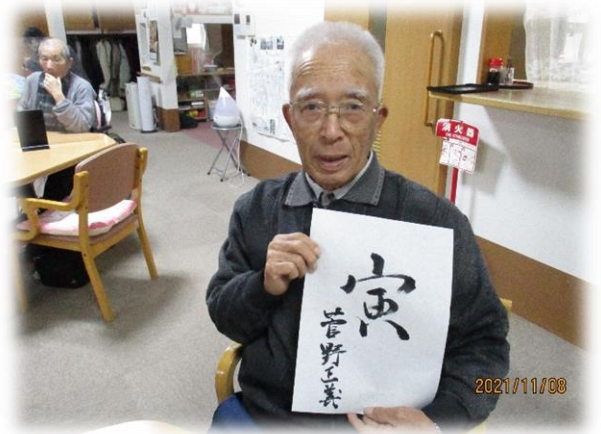 消火器
寅
菅野正義
2021/11/08